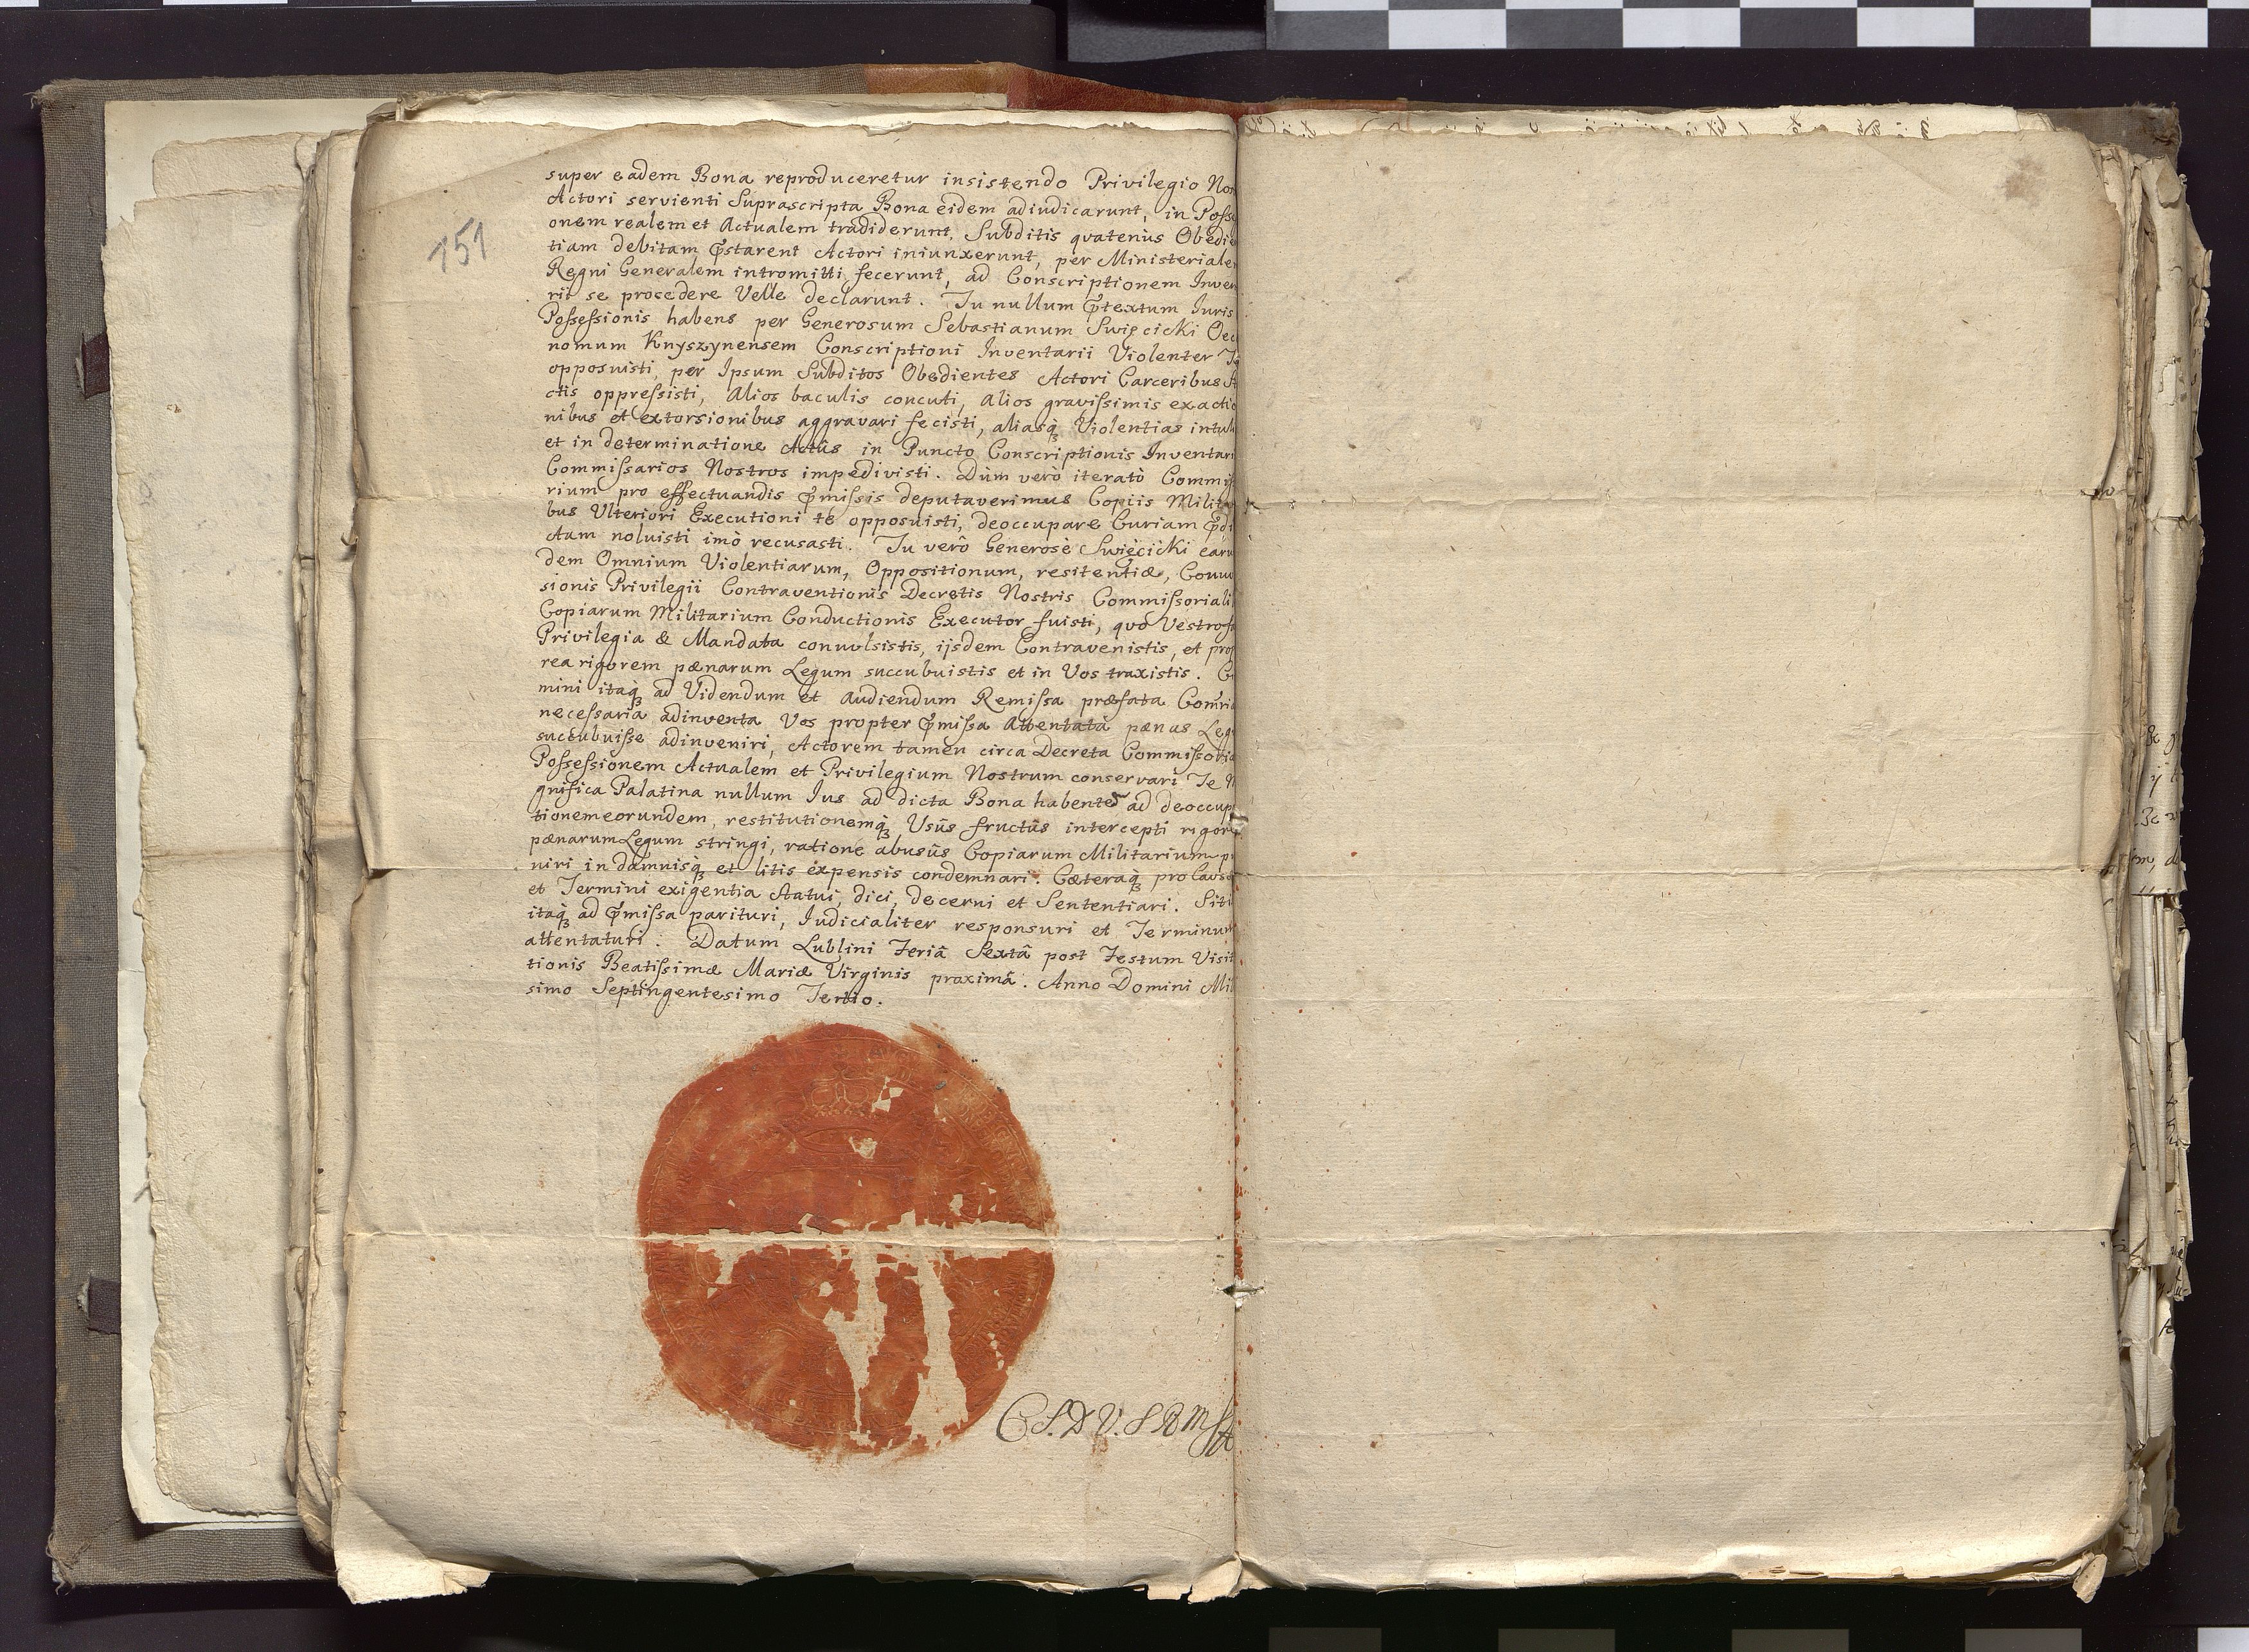 151
super eadem Bona reproduceretur insistendo Privilegio Nos
Actori servienti Suprascripta Bona eidem adiudicarunt, in Posse
onem realem et Actualem tradiderunt. Subditis qvatenus Obedie
tiam debitam p̃starent Actori iniunxerunt, per Ministerialem
Regni Generalem intromitti fecerunt, ad Conscriptionem Inven
rii se procedere Velle declarunt. Tu nullum p̃textum Iuris
Possessionis habens per Generosum Sebastianum Swięcicki Oeco
nomum Knyszynensem Conscriptioni Inventarii Violenter Te
opposuisti, per Ipsum Subditos Obedientes Actori Carceribus
ctis oppressisti, Alios baculis concuti, Alios gravissimis exactio
nibus et extorsionibus aggravari fecisti, aliasq̃ Violentias intul
et in determinatione Actûs in Puncto Conscriptionis Inventari
Commissarios Nostros impedivisti. Dùm verò iteratò Commiss
rium pro effectuandis p̃missis deputaverimus Copiis Milita
bus Ulteriori Executioni te opposuisti, deoccupare Curiam p̃di
ctam noluisti imò recusasti. Tu verò Generosè Swięcicki earu
dem Omnium Violentiarum, Oppositionum, resitentiæ, Convul
sionis Privilegii Contraventionis Decretis Nostris Commissoriali
Copiarum Militarium Conductionis Executor fuisti, quo Vestro
Privilegia & Mandata convulsistis, ijsdem Contravenistis, et prop
rea rigorem pænarum Legum succubuistis et in Vos traxistis. Ci
mini itaq̃ ad Videndum et Audiendum Remissa præfata
necessaria adinventa Vos propter p̃missa Attentata pænas Leg
succubuisse adinveniri, Actorem tamen circa Decreta Commissoria
Possessionem Actualem et Privilegium Nostrum conservari Te M
gnifica Palatina nullum Ius ad dicta Bona habentes ad deoccup
tionem eorundem, restitutionemq̃ Usûs fructûs intercepti rigori
pænarum Legum stringi, ratione abusûs Copiarum Militarium p
niri in damnisq̃ et litis expensis condemnari. Cæteraq̃ pro Causæ
et Termini exigentia Statui, dici, decerni et Sententiari. Siti
itaq̃ ad p̃missa parituri, Iudicialiter responsuri et Terminum
attentaturi. Datum Lublini Feriâ Sextâ post Festum Visit
tionis Beatissimæ Mariæ Virginis proximâ. Anno Domini Mil
simo Septingentesimo Tertio.